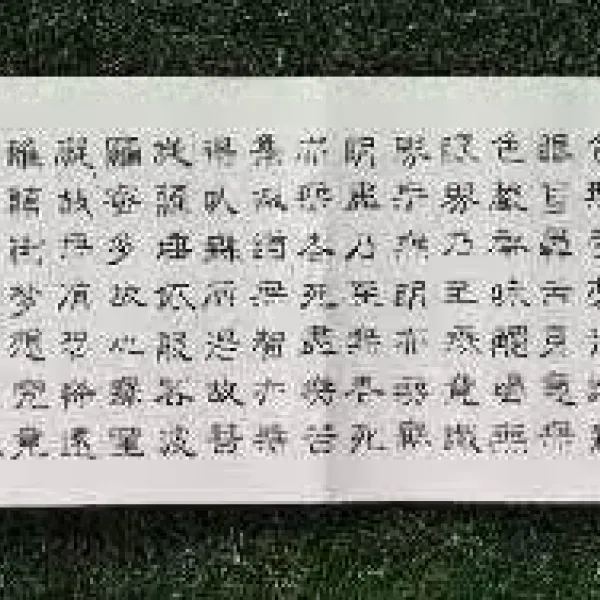 眼耳鼻舌身意無
色聲香味觸法無
眼界乃至無意識
界無無明亦無無
明盡乃至無老死
亦無老死盡無苦
集滅道無智亦無
得以無所得故菩
提薩埵依般若波
羅蜜多故心無罣
礙故無有恐怖遠
離顛倒夢想究竟